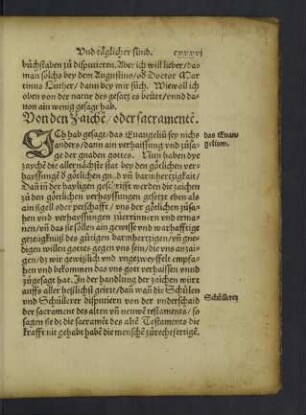 Und täglicher sünd. cxxxvi
büchstaben zů disputieren. Aber ich will lieber / das
man sölchs bey dem Augustino / od Doctor Mar
tinus Luther / dann bey mir süch. Wiewoll ich
oben von der natur des gesatz es heiter / vnnd da
von ain wenig gesagt hab.
Von den zaichē / oder sacramentē.
ICh hab gesagt / das Euangeliū sey nichs
anders / dann ain verhaissung vnd zůsa
ge der gnaden gottes. Nun haben dye
zaychē die allernächste stat bey den götlichen ver
hayssungē d götlichen gnad vn̄ barmhertzigkait /
Dan̄ in der hayligen geschrifft werden die zaichen
zů den götlichen verhayssungen gesetzt eben als
ain sigell oder petschafft / vns der götlichen zůsa
hen vnd verhayssungen züerrinnen vnd erma
nen / vn̄ das sie söllen ain gewisse vnd warhafftige
gezeügknuß des gütigen barmhertzigen / vn̄ gne
digen willen gottes gegen vns sein / die vns anzai
gen / dz wir gewißlich vnd vngezweyfelt empfa
hen vnd bekommen das vns got verhaissen vnd
zůgesagt hat. In der handlung der zaichen würt
auffs aller heßlichst geirrt / dan̄ wan̄ die Schůlen
vnd Schůllerer disputiern von der vnderschaid
der sacrament des alten vn̄ neuwē testaments / so
sagen sie dz die sacramēt des altē Testaments die
krafft nit gehabt habē die menschē zůrechtfertigē.
das Euan
gelium.
Schůllerer